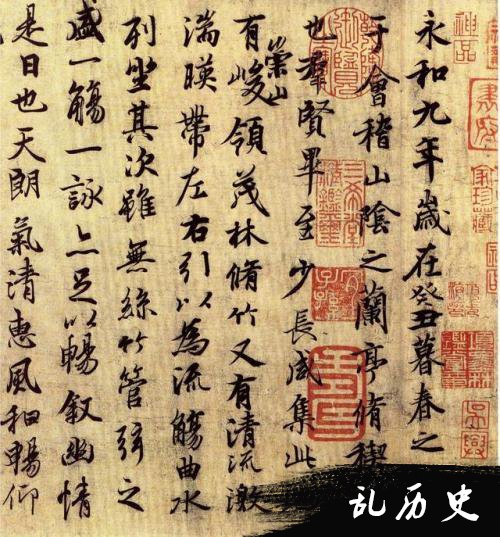 神品
永和九年歲在癸丑暮春之
于會稽山陰之蘭亭脩稧
也羣賢畢至少長咸集此
有崇山峻領茂林脩竹又有清流激
湍暎帶左右引以為流觴曲水
列坐其次雖無絲竹管弦之
盛一觴一詠亦足以暢叙幽情
是日也天朗氣清惠風和暢仰
乱历史